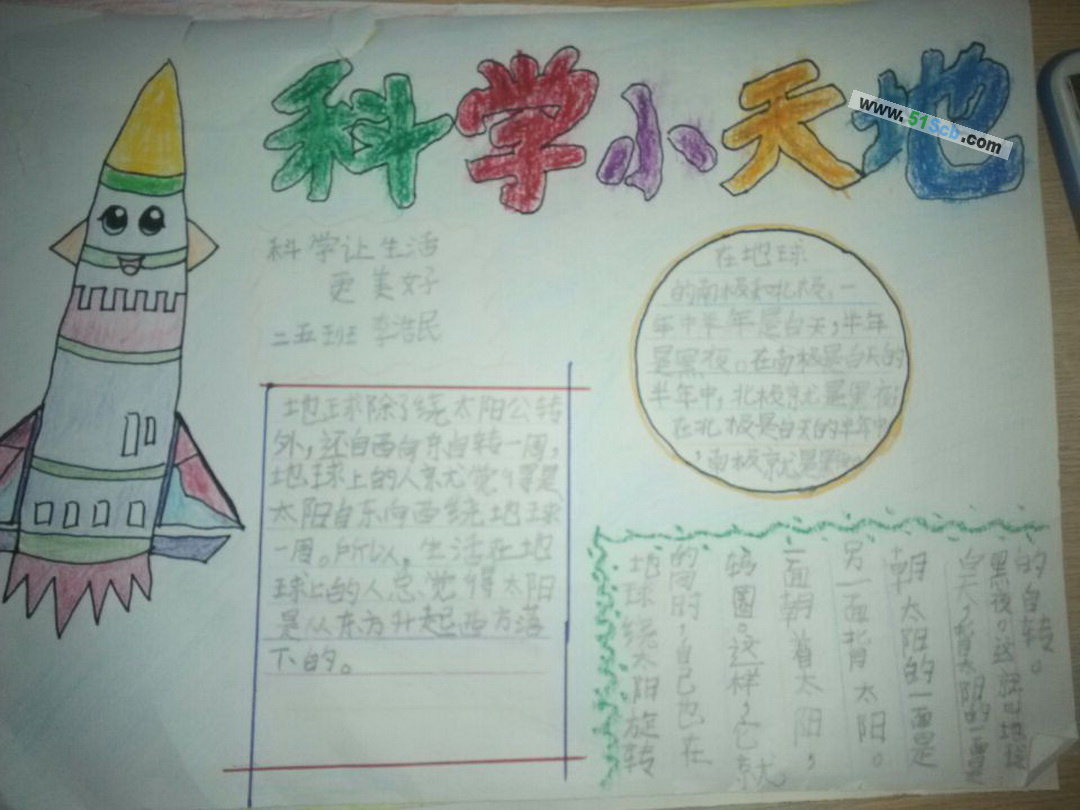 科学小天地
www.51Scb.com
科学让生活
更美好
二五班 李浩民
在地球
的南极和北极,一
年中半年是白天,半年
是黑夜。在南极是白天的
半年中,北极就是黑夜
在北极是白天的半年中
,南极就是黑
地球除了绕太阳公转
外,还自西向东自转一周,
地球上的人就觉得是
太阳自东向西绕地球
一周。所以,生活在地
球上的人总觉得太阳
是从东方升起西方落
下的。
地球绕太阳旋转
的同时,自己也在
转圈。这样,它就
一面朝着太阳,
另一面背太阳。
朝太阳的一面是
白天,背太阳的一面是
黑夜。这就叫地球
的自转。